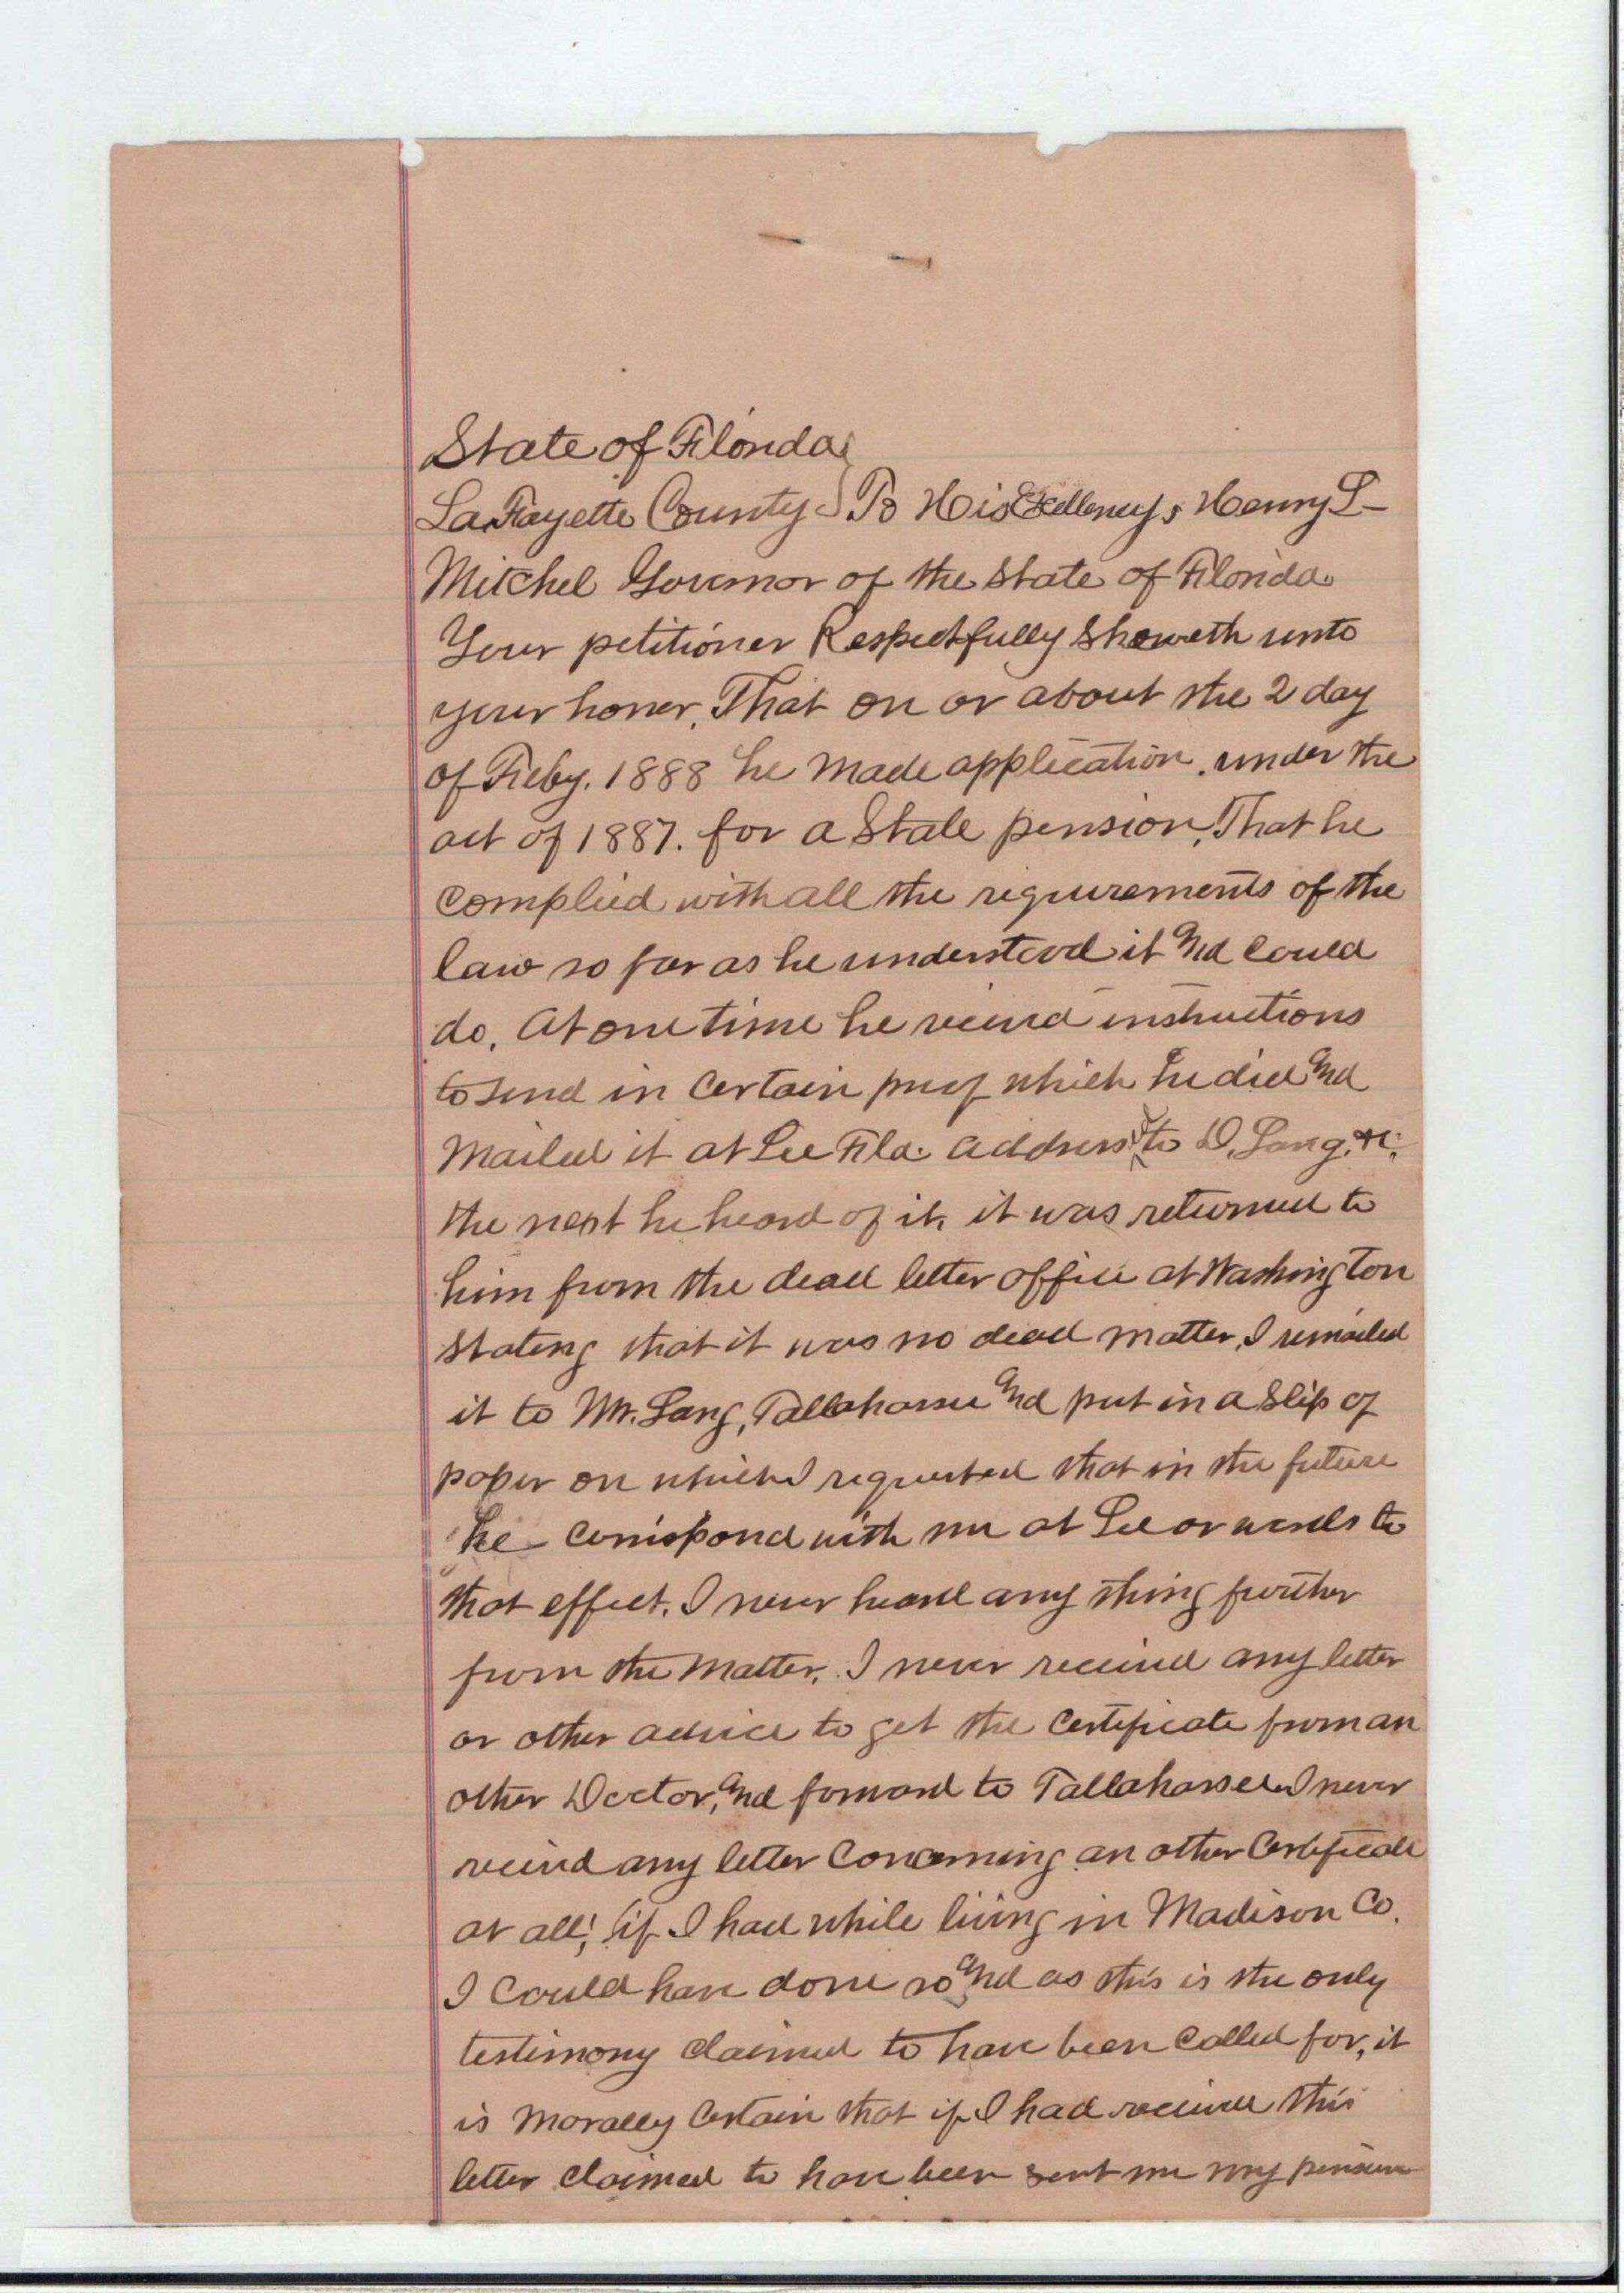 State of Florida
LaFayette County } To His Excellency, Henry L-
Mitchel Governor of the State of Florida
Your petitioner Respectfully Showeth unto
your honor. That on or about the 2 day
of Feby. 1888 he made application. under the
act of 1887. for a State pension, That he
complied with all the requirements of the
law so far as he understood it and could
do. At one time he receivd instructions
to send in certain proof which he did and
Mailed it at Lee Fla. addressed to D. Lang, &c.
the next he heard of it, it was returned to
him from the dead letter office at Washington
stating that it was no dead matter, I remailed
it to Mr. Lang, Tallahassee and put in a Slip of
paper on which I requested that in the future
he corrispond with me at Lee or words to
that effect. I never heard any thing further
from the Matter. I never received any letter
or other advice to get the certificate from an
other Doctor, and forward to Tallahassee. I never
receivd any letter concerning an other Certificate
at all; if I had while living in Madison Co.
I could have done so and as this is the only
testimony claimed to have been called for, it
is Morally certain that if I had received this
letter claimed to have been sent me my pension